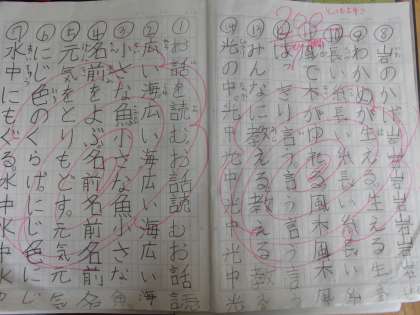 ①お話を読む。お話読む。お話読
②広い海広い海広い海広い海
③小さな魚小さな魚小さな魚
④名前をよぶ名前名前名前名
⑤元気をとりもどす。元気元気
⑥にじ色のくらげ。にじ色にじ
⑦水中にもぐる。水中水中水
⑧岩のかげ岩岩岩岩岩
⑨わかめが生える生える生
⑩長い糸長い糸長い
⑪風で木がゆれる風木風木
⑫はっきり言う。言う言う言う
⑬みんなに教える。教える教え
⑭光の中光の中光中光中